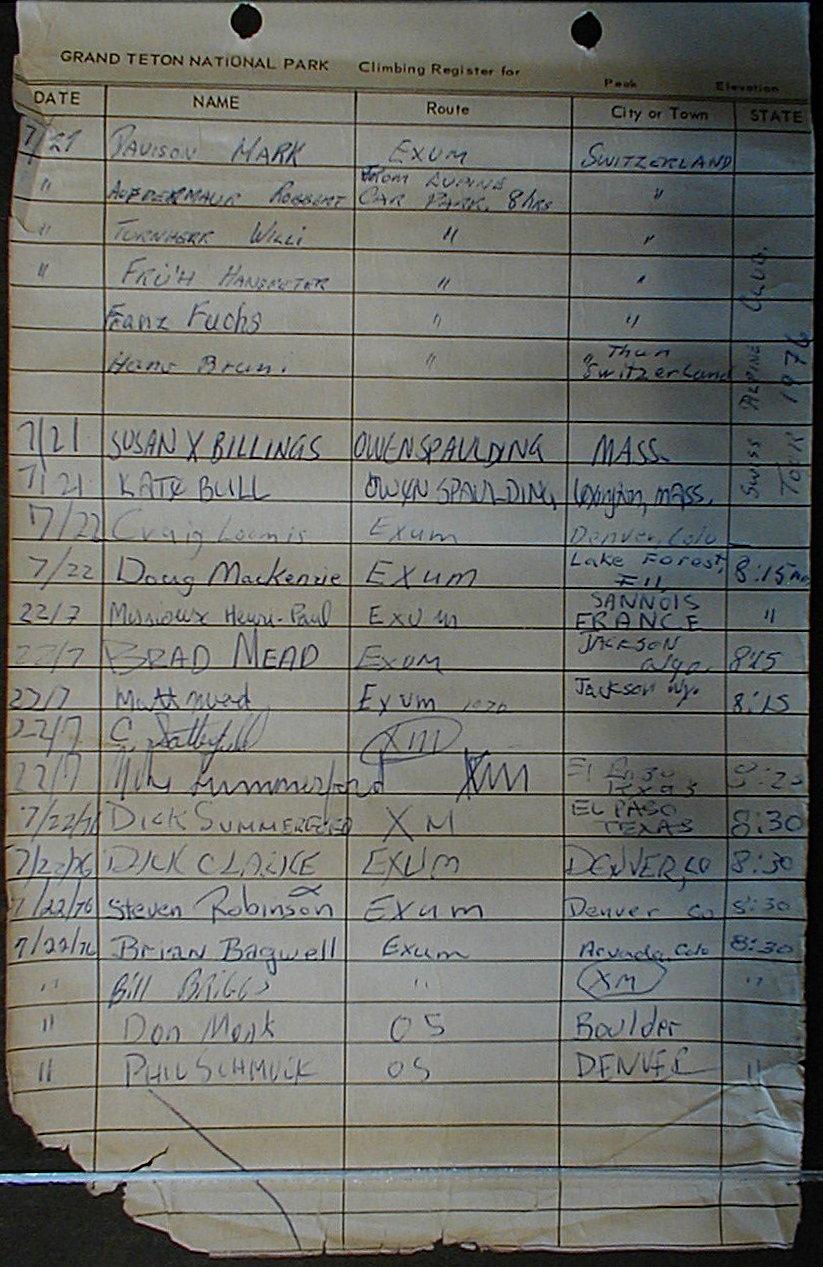 GRAND TETON NATIONAL PARK Climbing Register for Peak Elevation
DATE NAME Route City or Town STATE
7/21 DAVISON MARK EXUM SWITZERLAND
" AUFDERMAUR ROBBERT From LUPINE CAR PARK. 8 hrs "
" TURNHERR WILLI " "
" FRÜH HANSPETER " "
Franz Fuchs " "
Hans Bruni " " Thun Switzerland
SWISS ALPINE CLUB.
TOUR 1976
7/21 SUSAN X BILLINGS OWEN SPAULDING MASS.
7/21 KATE BULL OWEN SPAULDING Lexington, MASS.
7/22 Craig Loomis Exum Denver, Colo
7/22 Doug Mackenzie EXUM Lake Forest, Ill 8:15 AM
22/7 Henri-Paul EXUM SANNOIS FRANCE "
22/7 BRAD MEAD EXUM JACKSON Wyo. 8:15
22/7 Matt Mead EXUM 1976 Jackson Wy. 8:15
22/7 C. XM
22/7 Summerford XM El Paso Texas
7/22/76 DICK SUMMERFORD XM EL PASO TEXAS 8:30
7/22/76 DICK CLARKE EXUM DENVER, CO 8:30
7/22/76 Steven Robinson Exum Denver Co 8:30
7/22/76 Brian Bagwell Exum Arvada, Colo 8:30
" Bill BRIGGS " XM "
" Don Monk OS Boulder
" PHIL SCHMUCK OS DENVER "